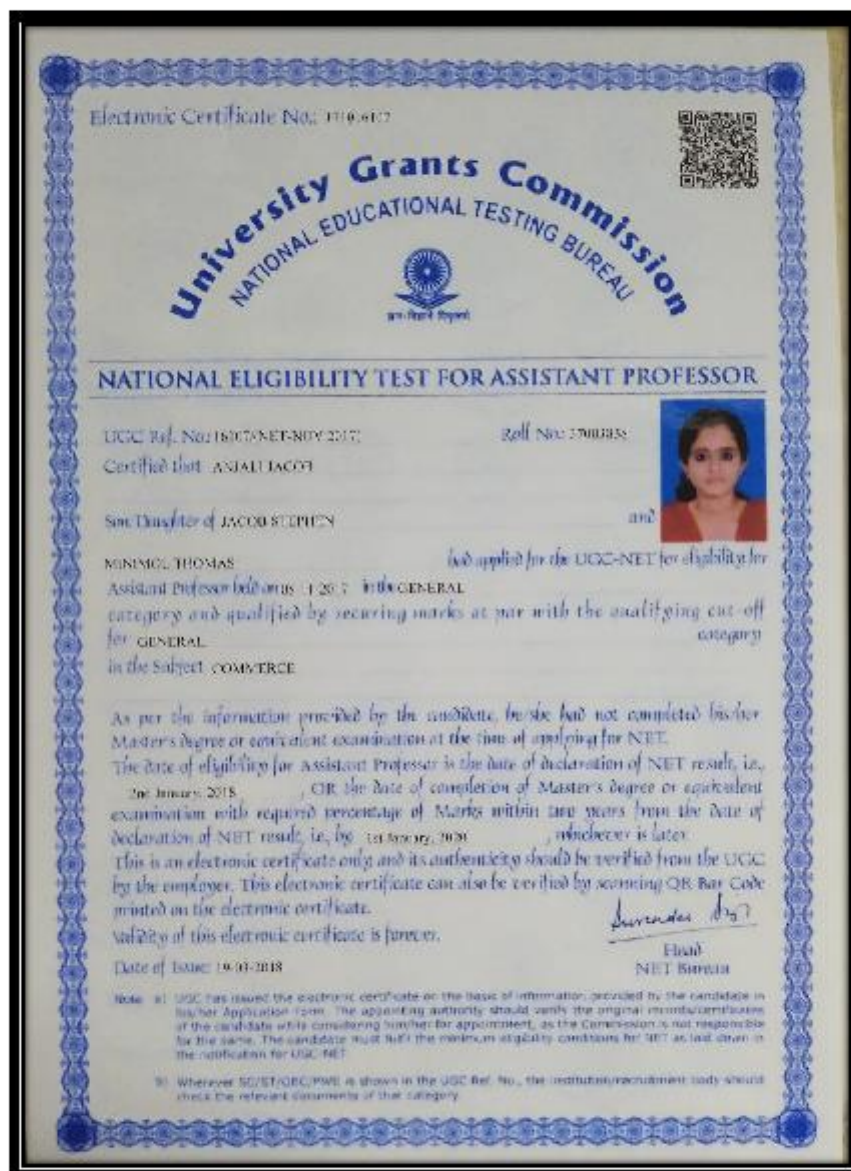 Electronic Certificate No.:
University Grants Commission
NATIONAL EDUCATIONAL TESTING BUREAU
ज्ञान-विज्ञानं विमुक्तये
NATIONAL ELIGIBILITY TEST FOR ASSISTANT PROFESSOR
UGC Ref. No.: (NET-NOV 2017) Roll No.:
Certified that ANJALI JACOB
Son/Daughter of JACOB STEPHEN and
MINIMOL THOMAS had applied for the UGC-NET for eligibility for
Assistant Professor held on in the GENERAL
category and qualified by securing marks at par with the qualifying cut-off
for GENERAL category
in the Subject COMMERCE
As per the information provided by the candidate, he/she had not completed his/her
Master's degree or equivalent examination at the time of applying for NET.
The date of eligibility for Assistant Professor is the date of declaration of NET result, i.e.,
2nd January, 2018 , OR the date of completion of Master's degree or equivalent
examination with required percentage of Marks within two years from the date of
declaration of NET result, i.e., by 1st January, 2020 , whichever is later.
This is an electronic certificate only and its authenticity should be verified from the UGC
by the employer. This electronic certificate can also be verified by scanning QR Bar Code
printed on the electronic certificate.
Validity of this electronic certificate is forever.
Head
Date of Issue: 19-03-2018 NET Bureau
Note: a) UGC has issued the electronic certificate on the basis of information provided by the candidate in
his/her Application Form. The appointing authority should verify the original records/certificates
of the candidate while considering him/her for appointment, as the Commission is not responsible
for the same. The candidate must fulfil the minimum eligibility conditions for NET as laid down in
the notification for UGC-NET.
b) Wherever SC/ST/OBC/PWD is shown in the UGC Ref. No., the institution/recruitment body should
check the relevant documents of that category.